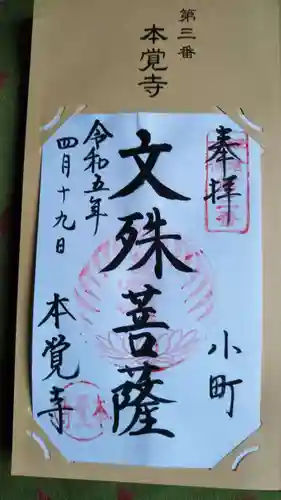 第三番
本覚寺
奉拝
小町
文殊菩薩
令和五年
四月十九日
本覚寺